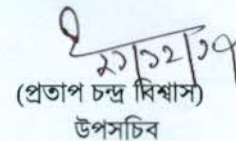 ২১/১২/১৭
(প্রতাপ চন্দ্র বিশ্বাস)
উপসচিব